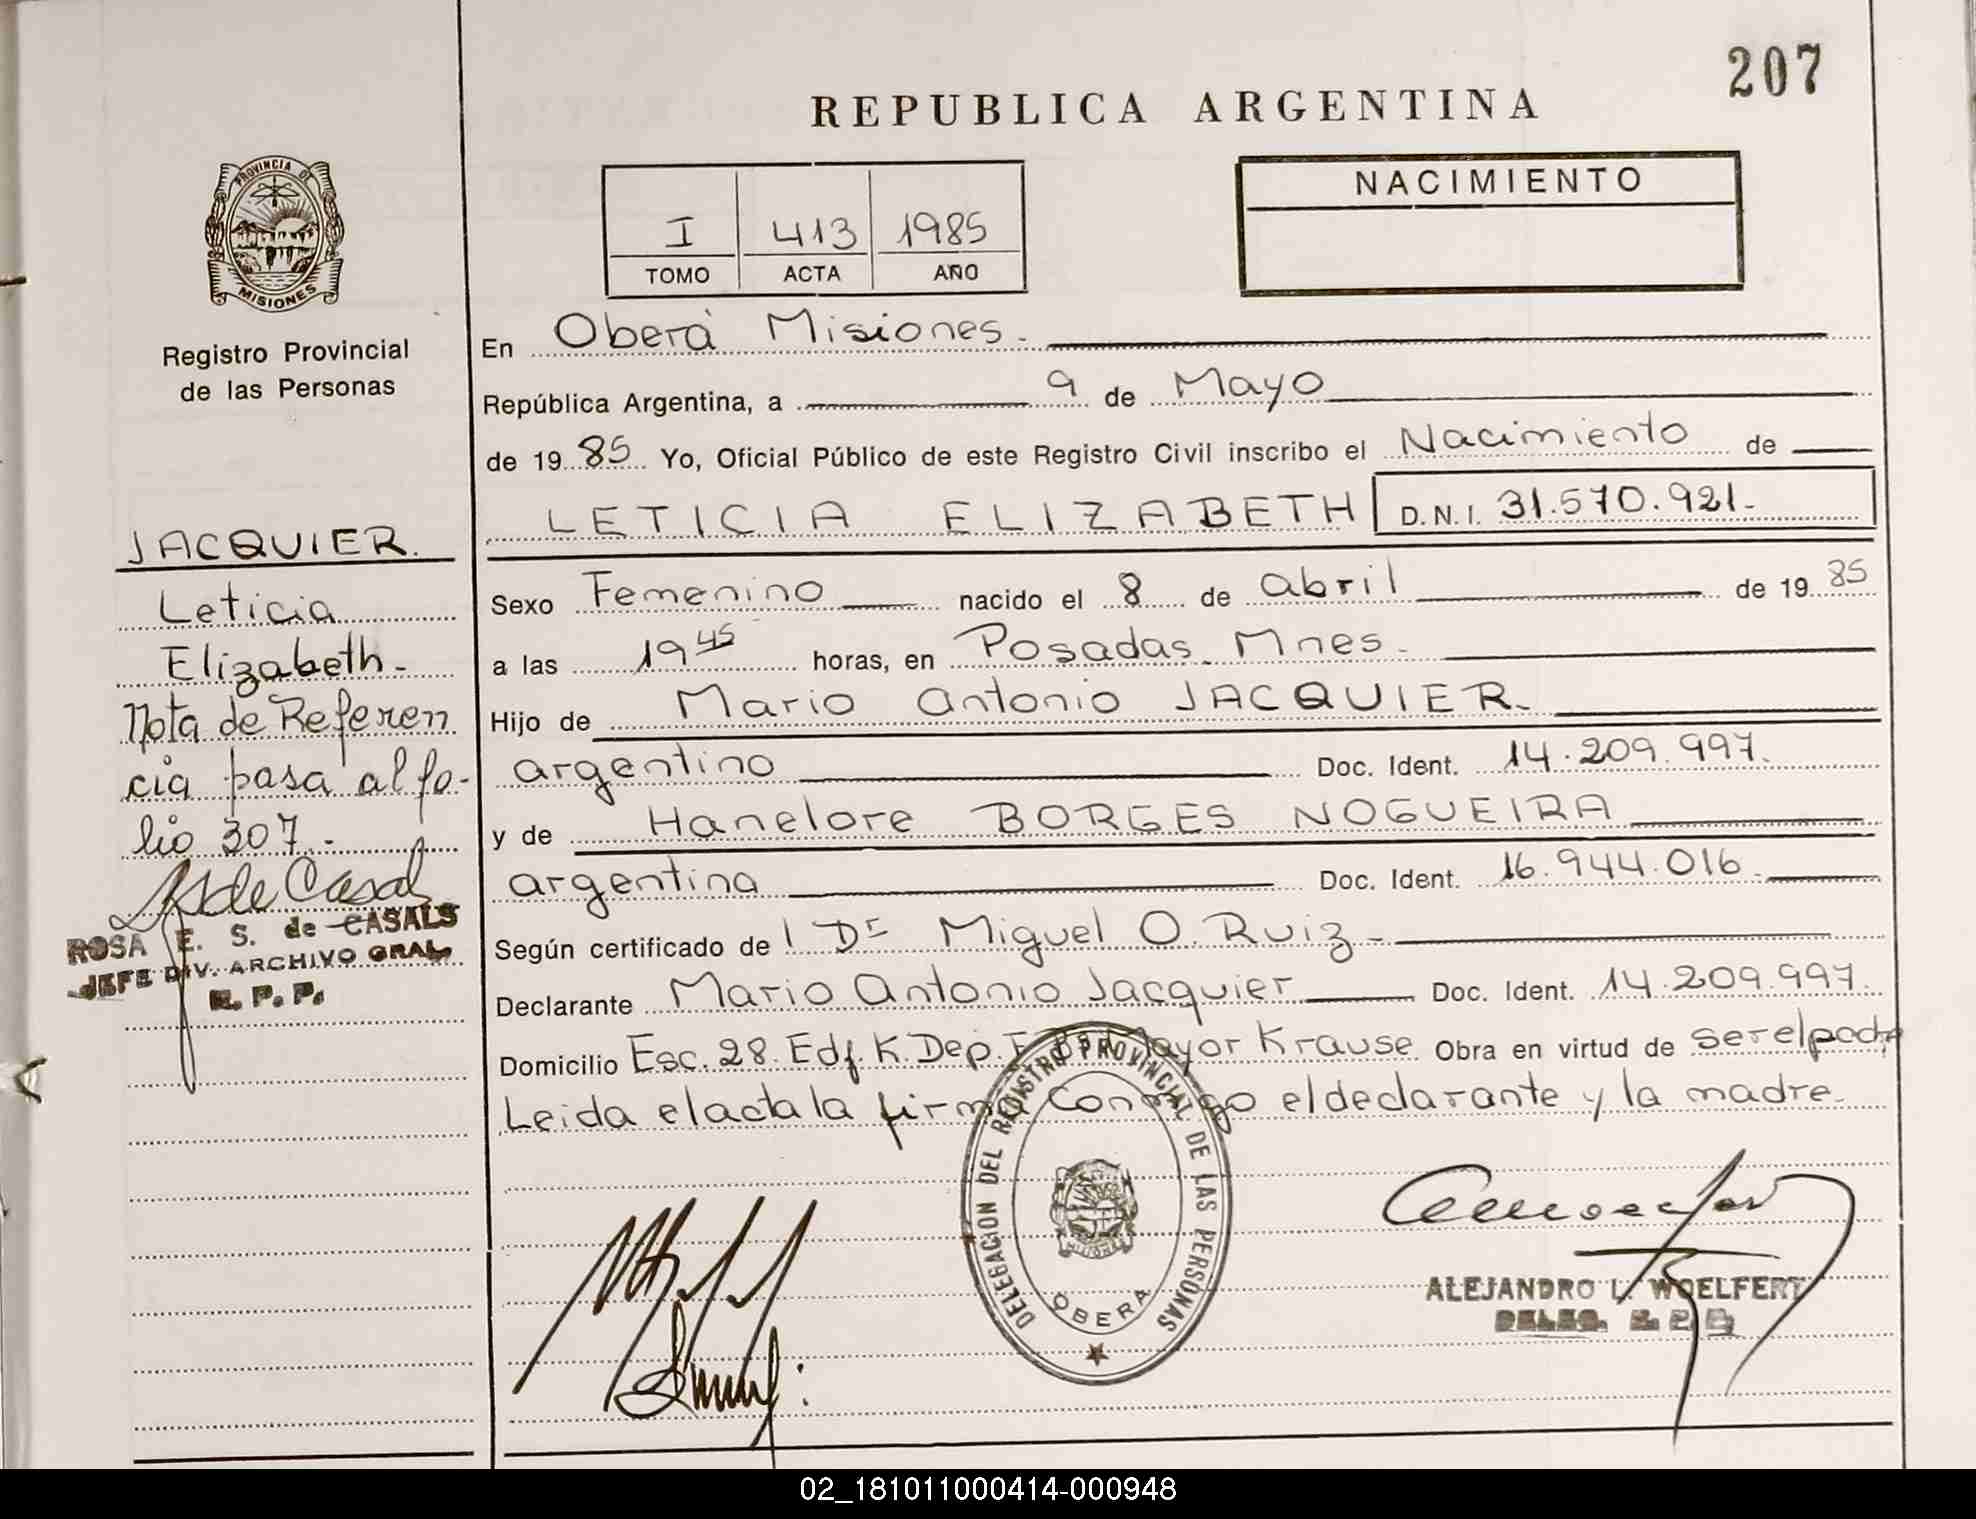 207
REPUBLICA ARGENTINA
PROVINCIA DE
MISIONES
Registro Provincial
de las Personas
I 413 1985
TOMO ACTA AÑO
NACIMIENTO
En Oberá Misiones.
República Argentina, a 9 de Mayo
de 1985 Yo, Oficial Público de este Registro Civil inscribo el Nacimiento de
LETICIA ELIZABETH D.N.I. 31.570.921.-
Sexo Femenino nacido el 8 de abril de 1985
a las 19 45 horas, en Posadas. Mnes.
Hijo de Mario Antonio JACQUIER.
argentino Doc. Ident. 14.209.997.
y de Hanelore BORGES NOGUEIRA
argentina Doc. Ident. 16.944.016.
Según certificado de l Dr Miguel O. Ruiz.
Declarante Mario Antonio Jacquier Doc. Ident. 14.209.997.
Domicilio Esc. 28. Edf. K. Dep. Krause. Obra en virtud de ser el padre
Leida el acta la firma conmigo el declarante y la madre.
JACQUIER.
Leticia
Elizabeth.-
Nota de Referen
cia pasa al fo-
lio 307.-
ROSA E. S. de CASALS
JEFE DIV. ARCHIVO GRAL.
R. P. P.
DELEGACION DEL REGISTRO PROVINCIAL DE LAS PERSONAS
OBERA
ALEJANDRO L. WOELFERT
DELEG. R. P. P.
02_181011000414-000948